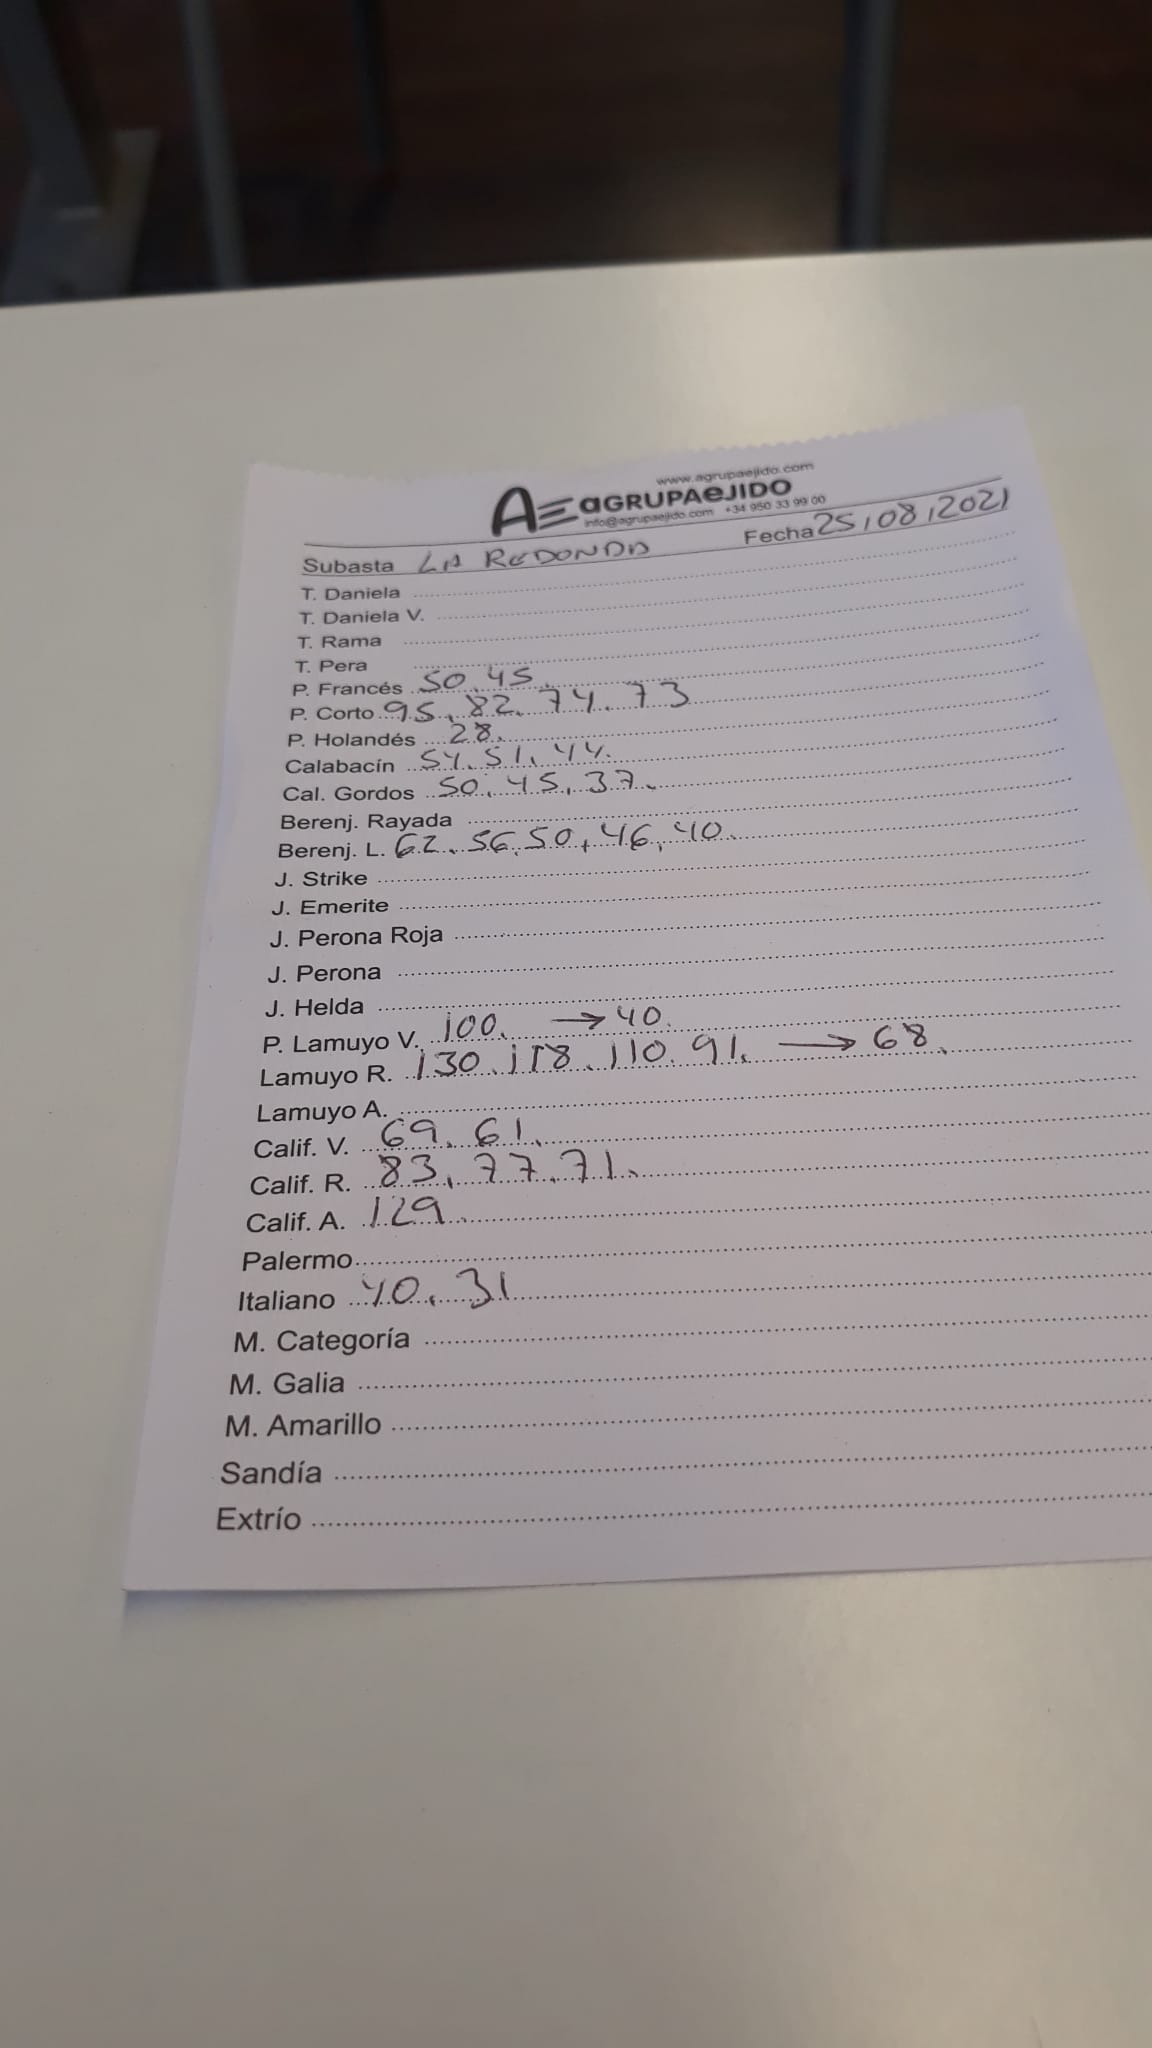 www.agrupaejido.com
AE aGRUPAeJIDO
info@agrupaejido.com +34 950 33 99 00
Subasta LA REDONDA Fecha 25/08/2021
T. Daniela
T. Daniela V.
T. Rama
T. Pera
P. Francés 50, 45,
P. Corto 95, 82, 74, 73
P. Holandés 28,
Calabacín 54, 51, 44.
Cal. Gordos 50, 45, 37,
Berenj. Rayada
Berenj. L. 62, 56, 50, 46, 40,
J. Strike
J. Emerite
J. Perona Roja
J. Perona
J. Helda
P. Lamuyo V. 100, → 40.
Lamuyo R. 130, 118, 110, 91, → 68,
Lamuyo A.
Calif. V. 69, 61,
Calif. R. 83, 77, 71,
Calif. A. 129,
Palermo
Italiano 40, 31
M. Categoría
M. Galia
M. Amarillo
Sandía
Extrío